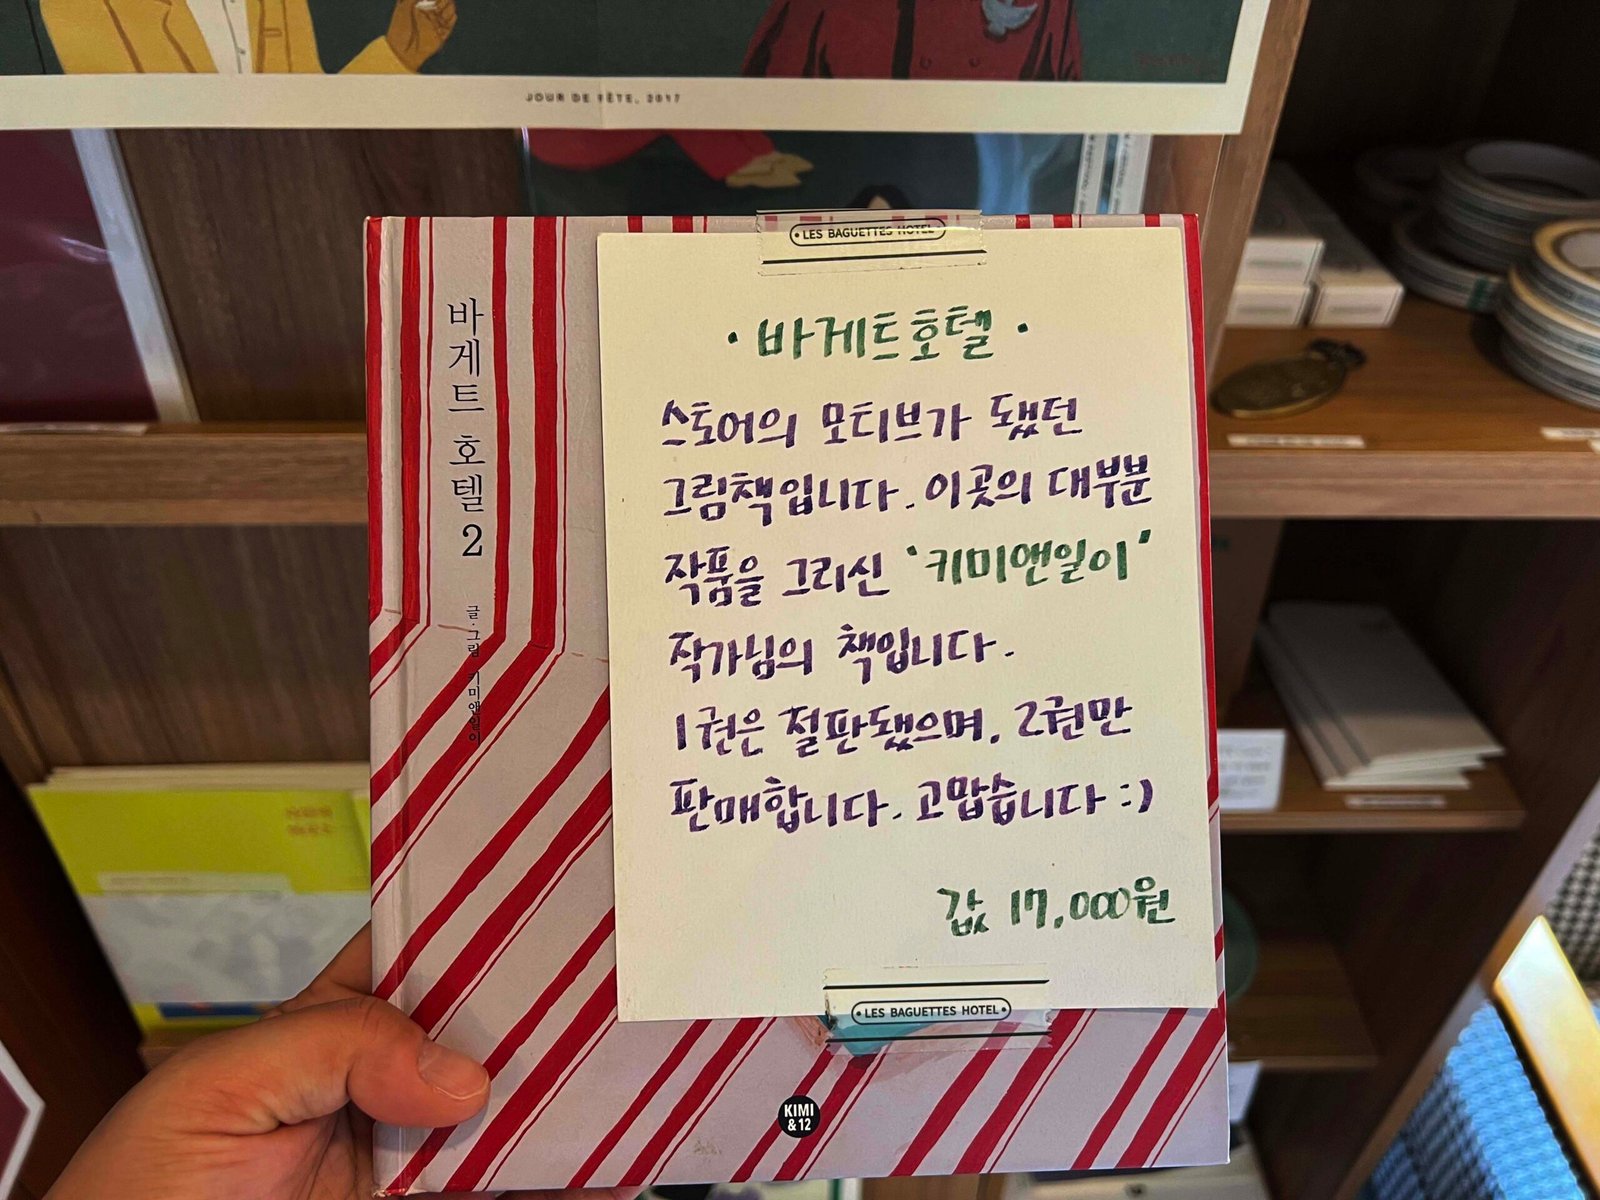 JOUR DE FÊTE, 2017
바게트 호텔 2
글·그림 키미앤일이
•LES BAGUETTES HOTEL•
·바게트호텔·
스토어의 모티브가 됐던
그림책입니다. 이곳의 대부분
작품을 그리신 '키미앤일이'
작가님의 책입니다.
1권은 절판됐으며, 2권만
판매합니다. 고맙습니다 :)
값 17,000원
•LES BAGUETTES HOTEL•
KIMI
&12